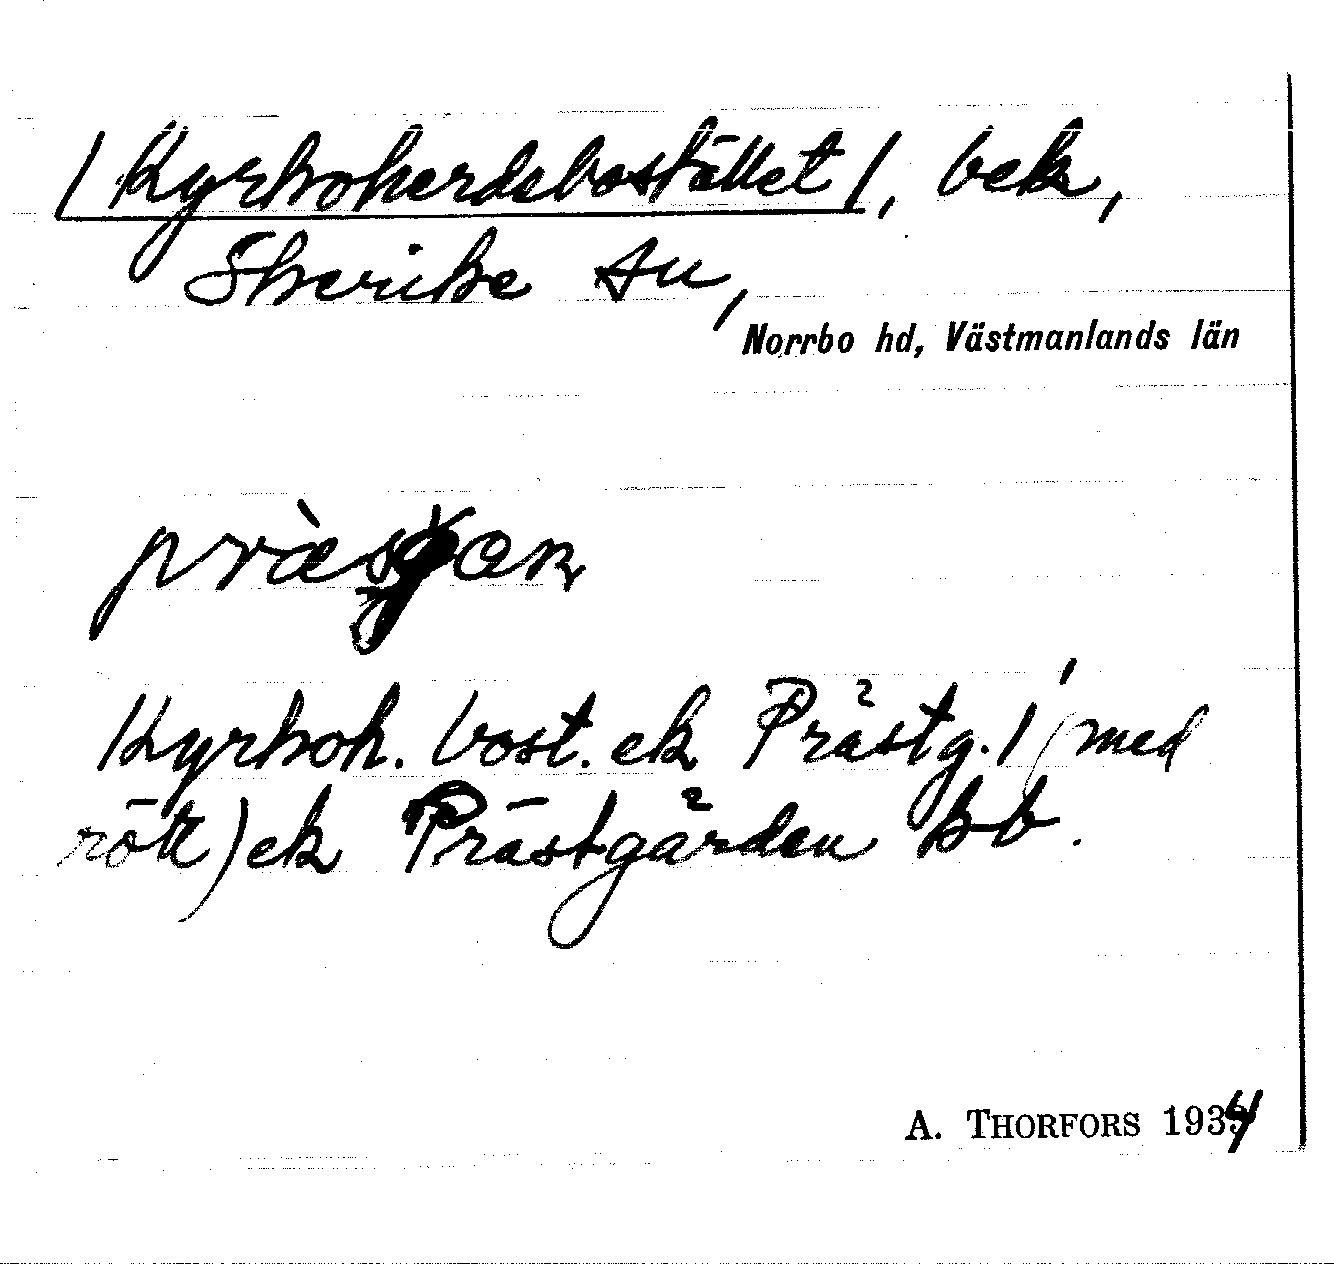 /Kyrkoherdebostället/, bek,
Skerike sn,
Norrbo hd, Västmanlands län
Kyrkoh. bost. ek Prästg. 1 (med
rött) ek Prästgården kb.
A. THORFORS 1934